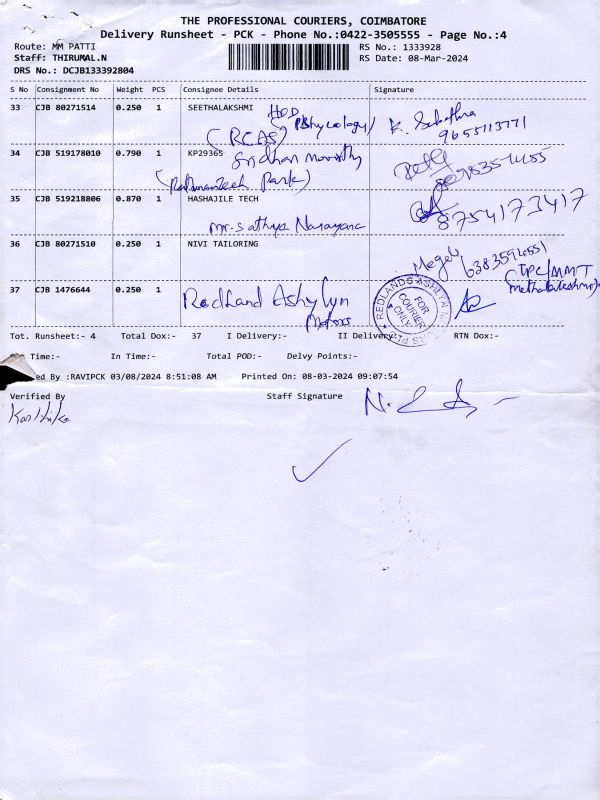 THE PROFESSIONAL COURIERS, COIMBATORE
Delivery Runsheet - PCK - Phone No.:0422-3505555 - Page No.:4
Route: MM PATTI RS No.: 1333928
Staff: THIRUMAL.N RS Date: 08-Mar-2024
DRS No.: DCJB133392804
S No Consignment No Weight PCS Consignee Details Signature
33 CJB 80271514 0.250 1 SEETHALAKSHMI HOD
(RCAS) 9655113771
34 CJB 519178010 0.790 1 KP29365
Park)
35 CJB 519218806 0.870 1 HASHAJILE TECH 8754173417
Mr. Sathya Narayana
36 CJB 80271510 0.250 1 NIVI TAILORING
37 CJB 1476644 0.250 1 Redland Ashylyn
Motors
FOR COURIER ONLY
Tot. Runsheet:- 4 Total Dox:- 37 I Delivery:- II Delivery:- RTN Dox:-
Time:- In Time:- Total POD:- Delvy Points:-
ed By :RAVIPCK 03/08/2024 8:51:08 AM Printed On: 08-03-2024 09:07:54
Verified By Staff Signature